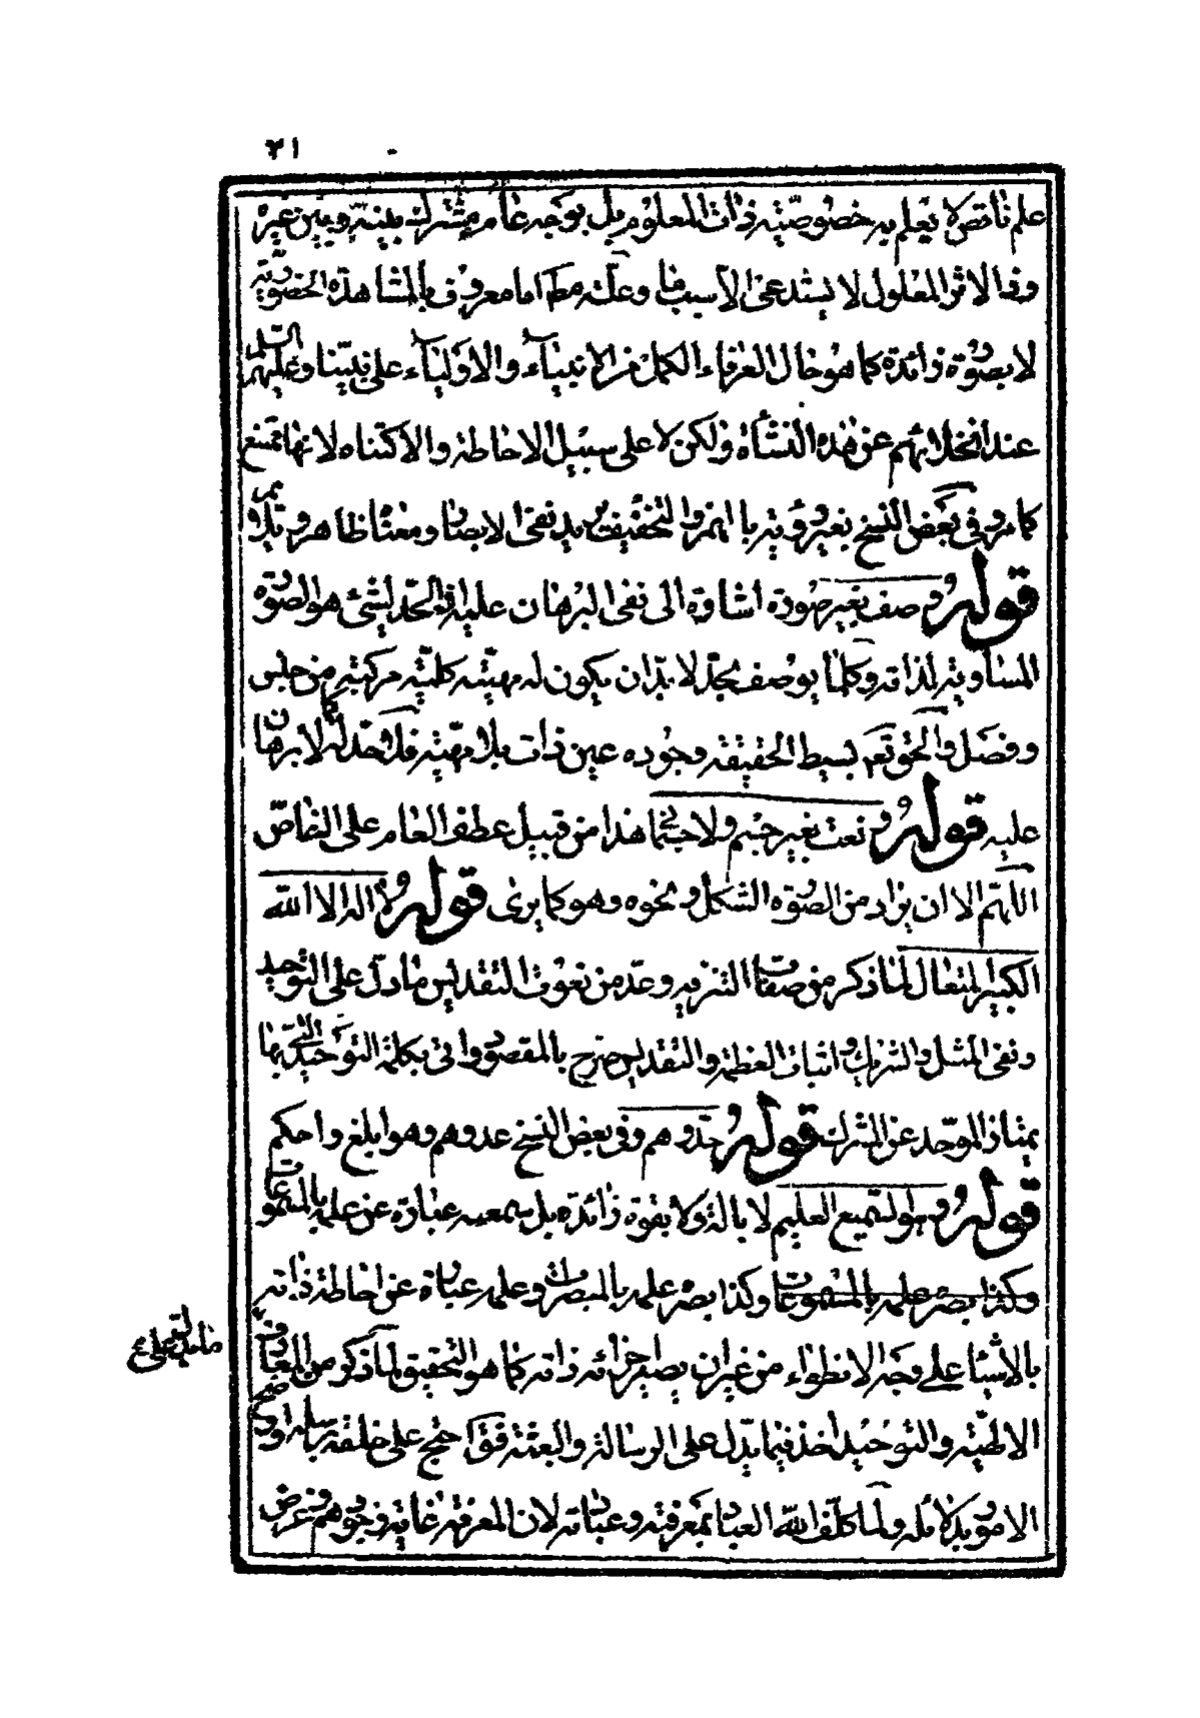 ٣١
علم ناقص لا يعلم به خصوصيّته ذات المعلوم بل بوجه عام مشترك بينه وبين غيره
وذا الاثر المعلول لا يستدعى الا سببا ما وعلّة مط اما معروف بالمشاهدة الحضورية
لا بصورة زائدة كما هو حال العرفاء الكمل من الانبياء والاولياء على نبيّنا وعليهم السلم
عند انخلاعهم عن هذه النشأة ولكن لا على سبيل الاحاطة والاكتناه لانها ممتنع
كما مر وفى بعض النسخ بغير رؤية بالهمز والتخفيف يريد نفى الابصار ومعناه ظاهر
قوله ووصف بغير صورة اشارة الى نفى البرهان عليه اذ الحد لشئ هو الصورة
المساوية لذاته وكلما يوصف بحدّ لا بدّ ان يكون له مهيّته كليّة مركبة من جنس
وفصل والحق تعم بسيط الحقيقة وجوده عين ذات بلا مهيّة فلا حدّ له كما لا برهان
عليه قوله ونعت بغير جسم ولا جسمانى هذا من قبيل عطف العام على الخاصّ
اللّهم الا ان يراد من الصورة الشكل ونحوه وهو كما يرى قوله لا اله الا الله
الكبير المتعال لما ذكر من صفات التنزيه وعد من نعوت التقديس ما دل على التوحيد
ونفى المثل والشريك واثبات العظمة والتقديس صرح بالمقصود واتى بكلمة التوحيد التى بها
يمتاز الموحّد عن المشرك قوله حدوهم وفى بعض النسخ عدوهم وهو ابلغ واحكم
قوله وهو السّميع العليم لا بالة ولا بقوة زائدة بل سمعيه عبارة عن علمه بالمسموعات
وكذا بصره علمه بالمسموعات وكذا بصره علمه بالمبصرات وعلمه عبارة عن احاطة ذاته
بالاشياء على وجه الانطواء من غير ان يصير اجزائه ذاته كما هو التحقيق لما ذكر من المعارف
الالهيّة والتوحيد اخذ فيما يدل على الرسالة والبعثة فق احتج على خلقه برسله
الامور بدلائله ولما كلّف الله العباد بمعرفته وعبادته لان المعرفة غاية وجودهم وغرض